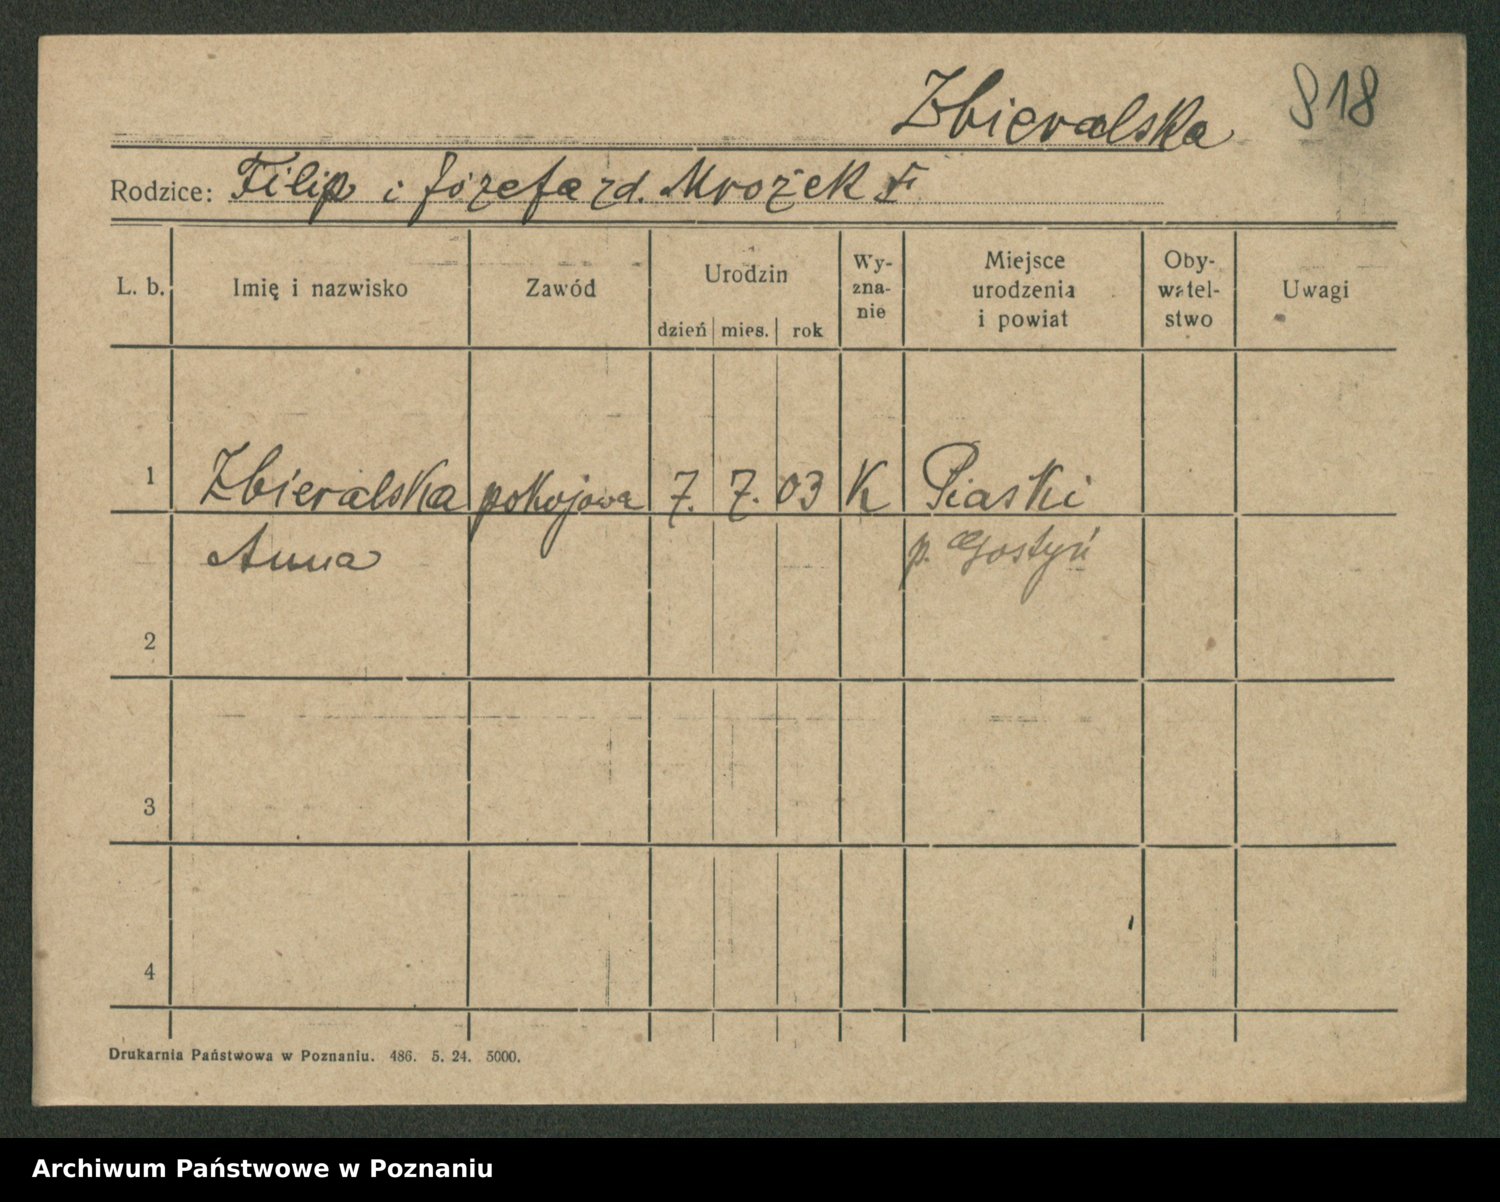 Zbieralska
818
Rodzice: Filip i Józefa zd. Mrożek
L. b. Imię i nazwisko Zawód Urodzin Wy-zna-nie Miejsce urodzenia i powiat Oby-watel-stwo Uwagi
dzień mies. rok
1 Zbieralska pokojowa 7. 7. 03 K Piaski
Anna p. Gostyń
2
3
4
Drukarnia Państwowa w Poznaniu. 486. 5. 24. 5000.
Archiwum Państwowe w Poznaniu